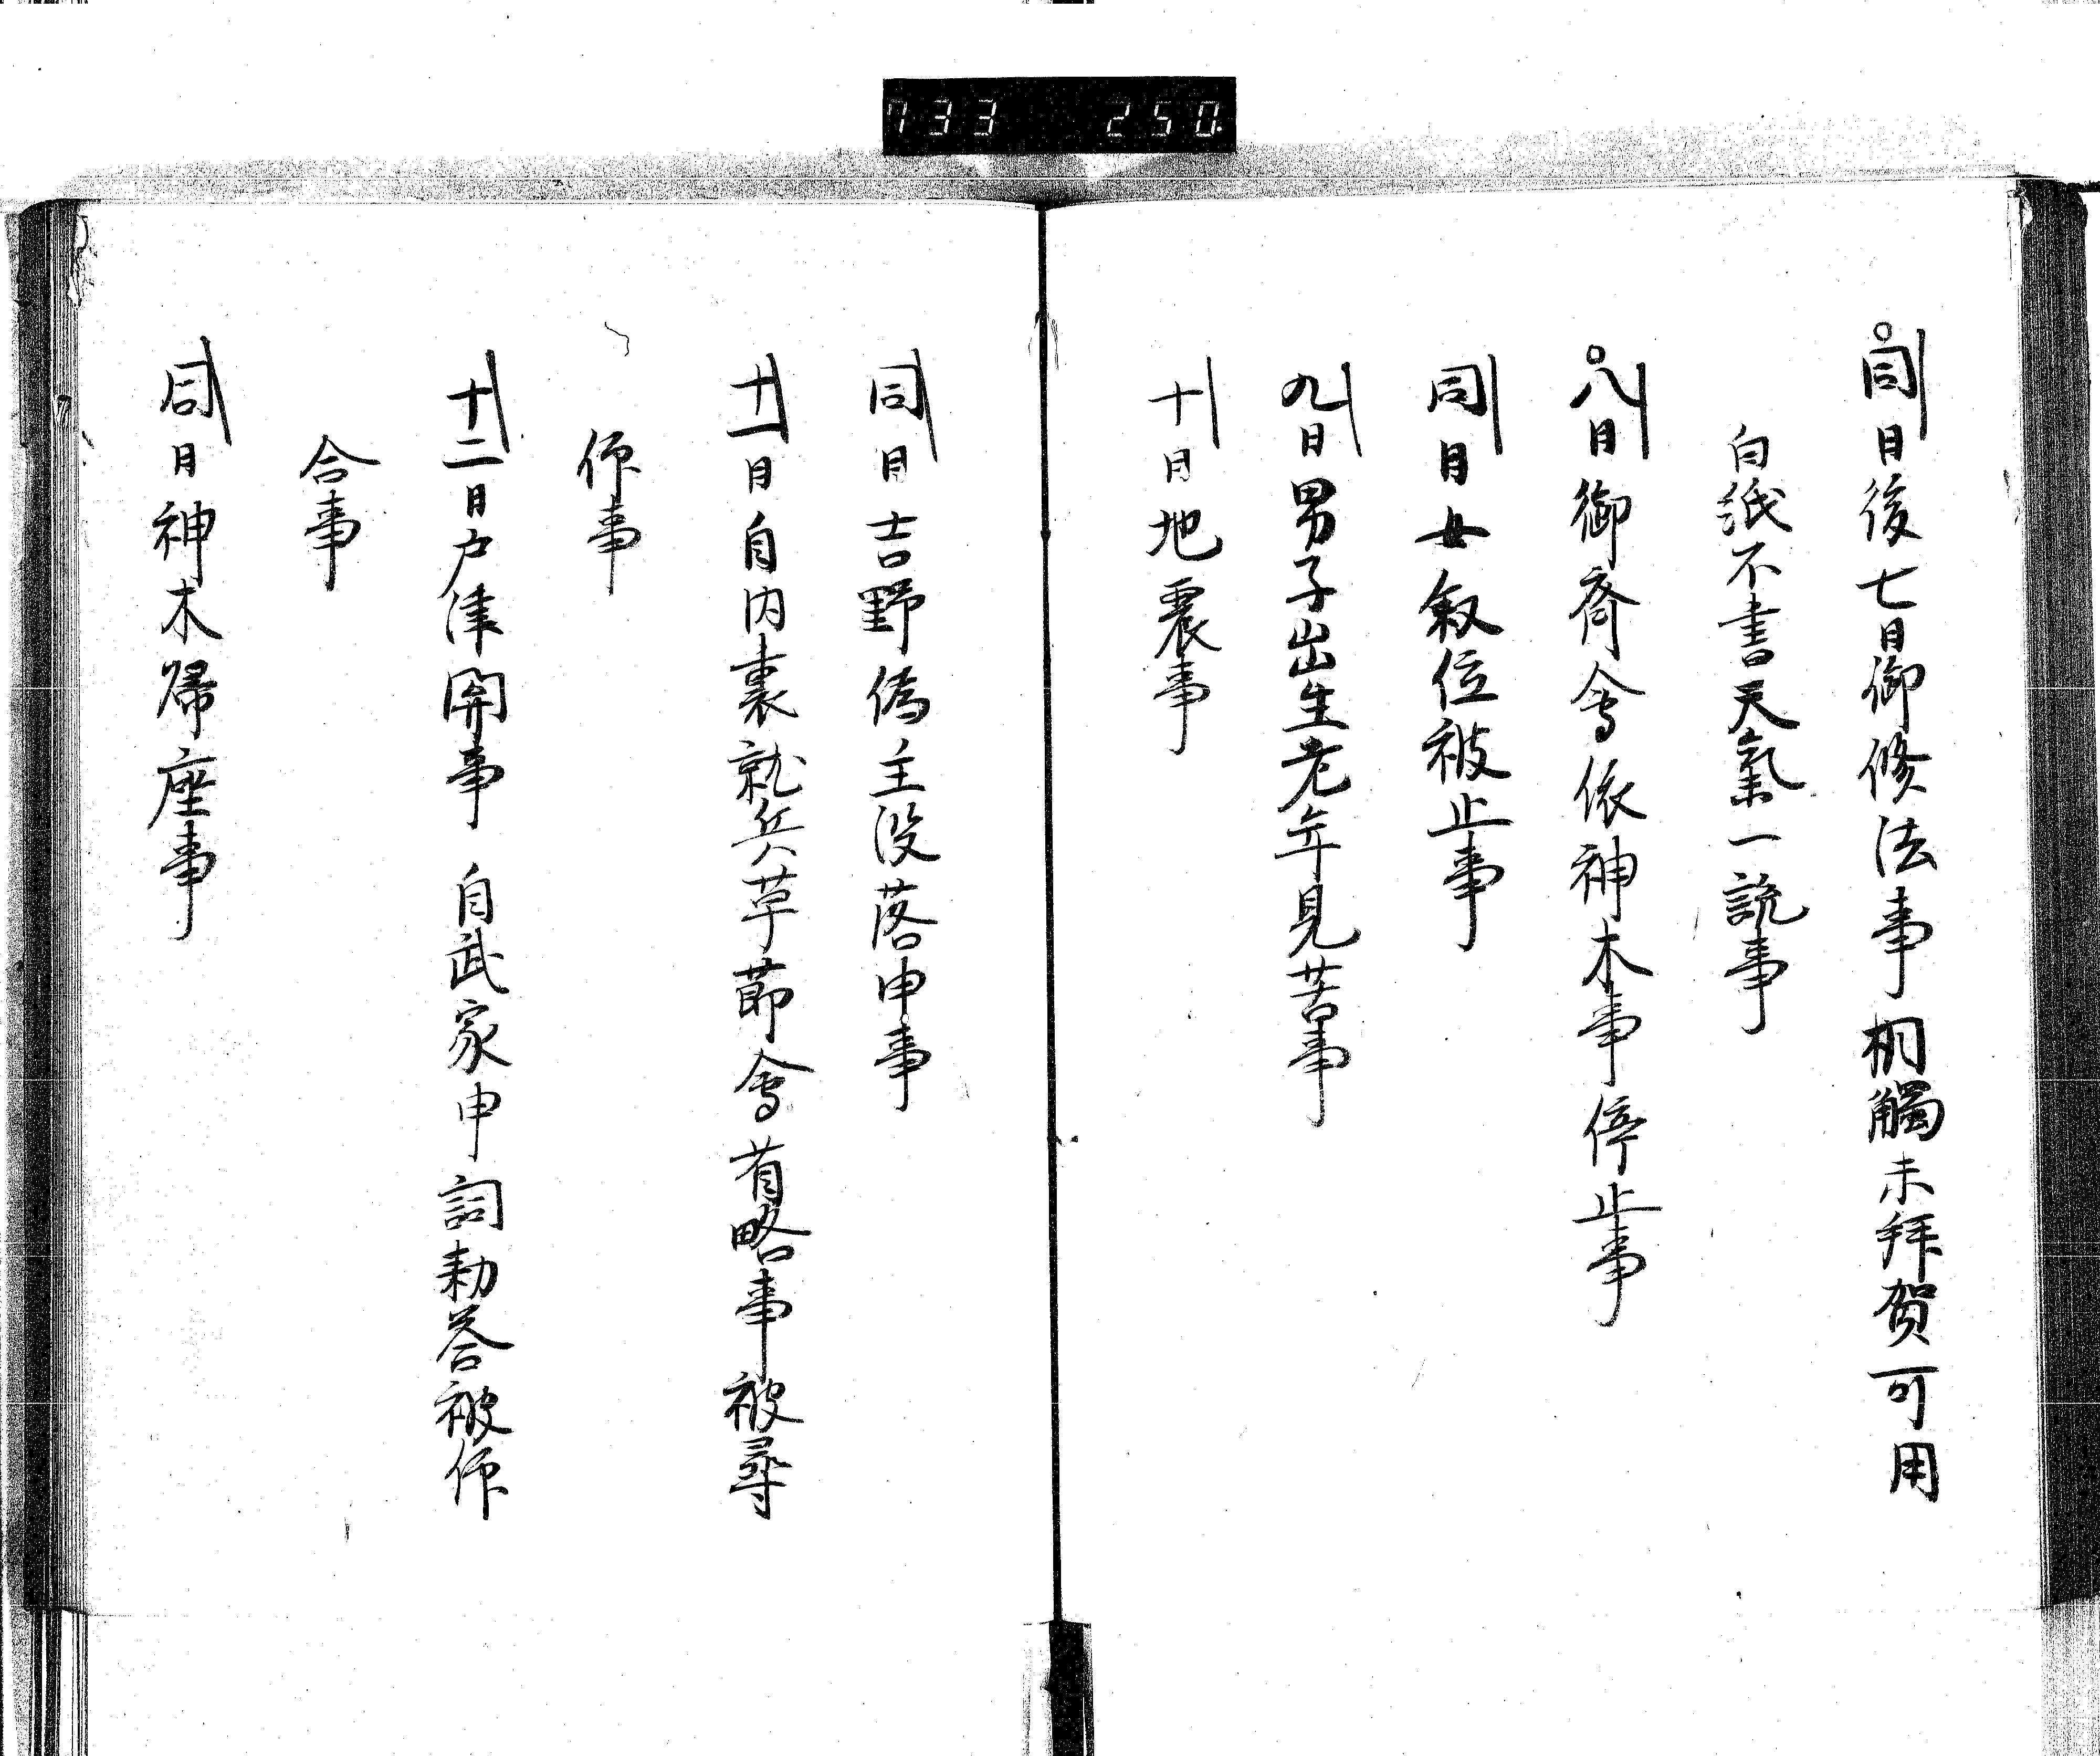 733 250
同日後七日御修法事 桐觸未拜賀可用
白紙不書天氣一説事
八日御斎會依神木事停止事
同日女叙位被止事
九日男子出生老年見苦事
十日地震事
同日吉野偽主没落申事
十一日自内裏就兵革節會有略事被尋
仰事
十二日戸津開事 自武家申詞勅答被仰
合事
同日神木帰座事